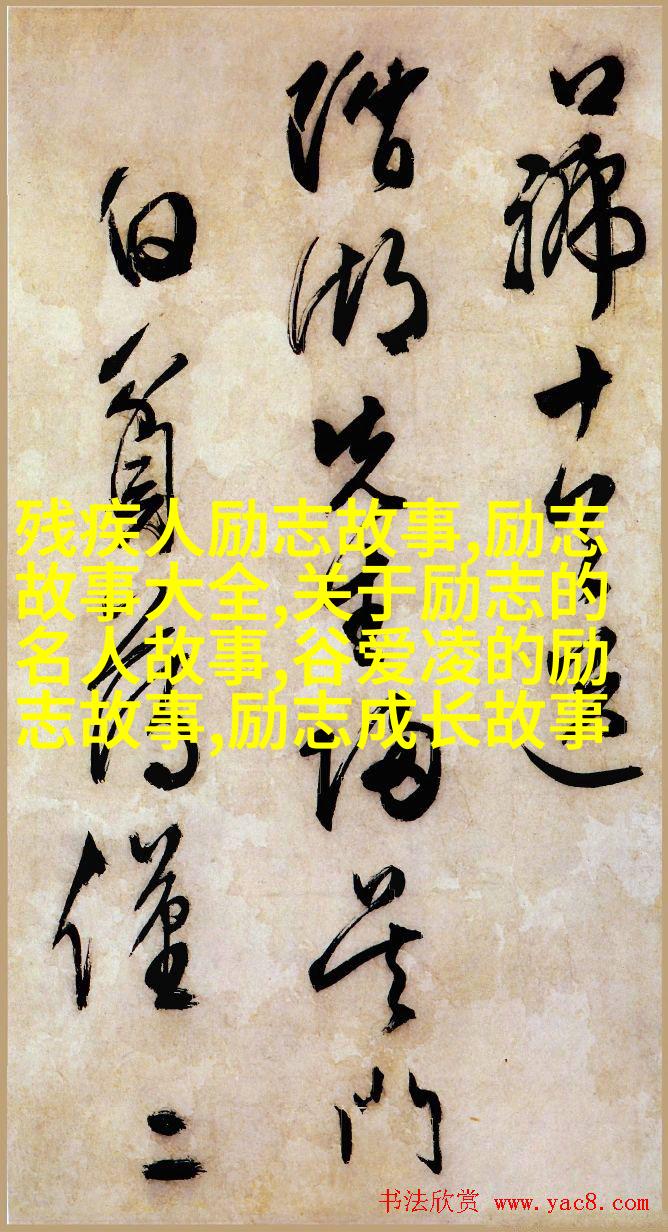 口號十送
湖先生歸吳門
僅二
残疾人励志故事,励志
故事大全,关于励志的
名人故事,谷爱凌的励
志故事,励志成长故事
书法欣赏 www.yac8.com